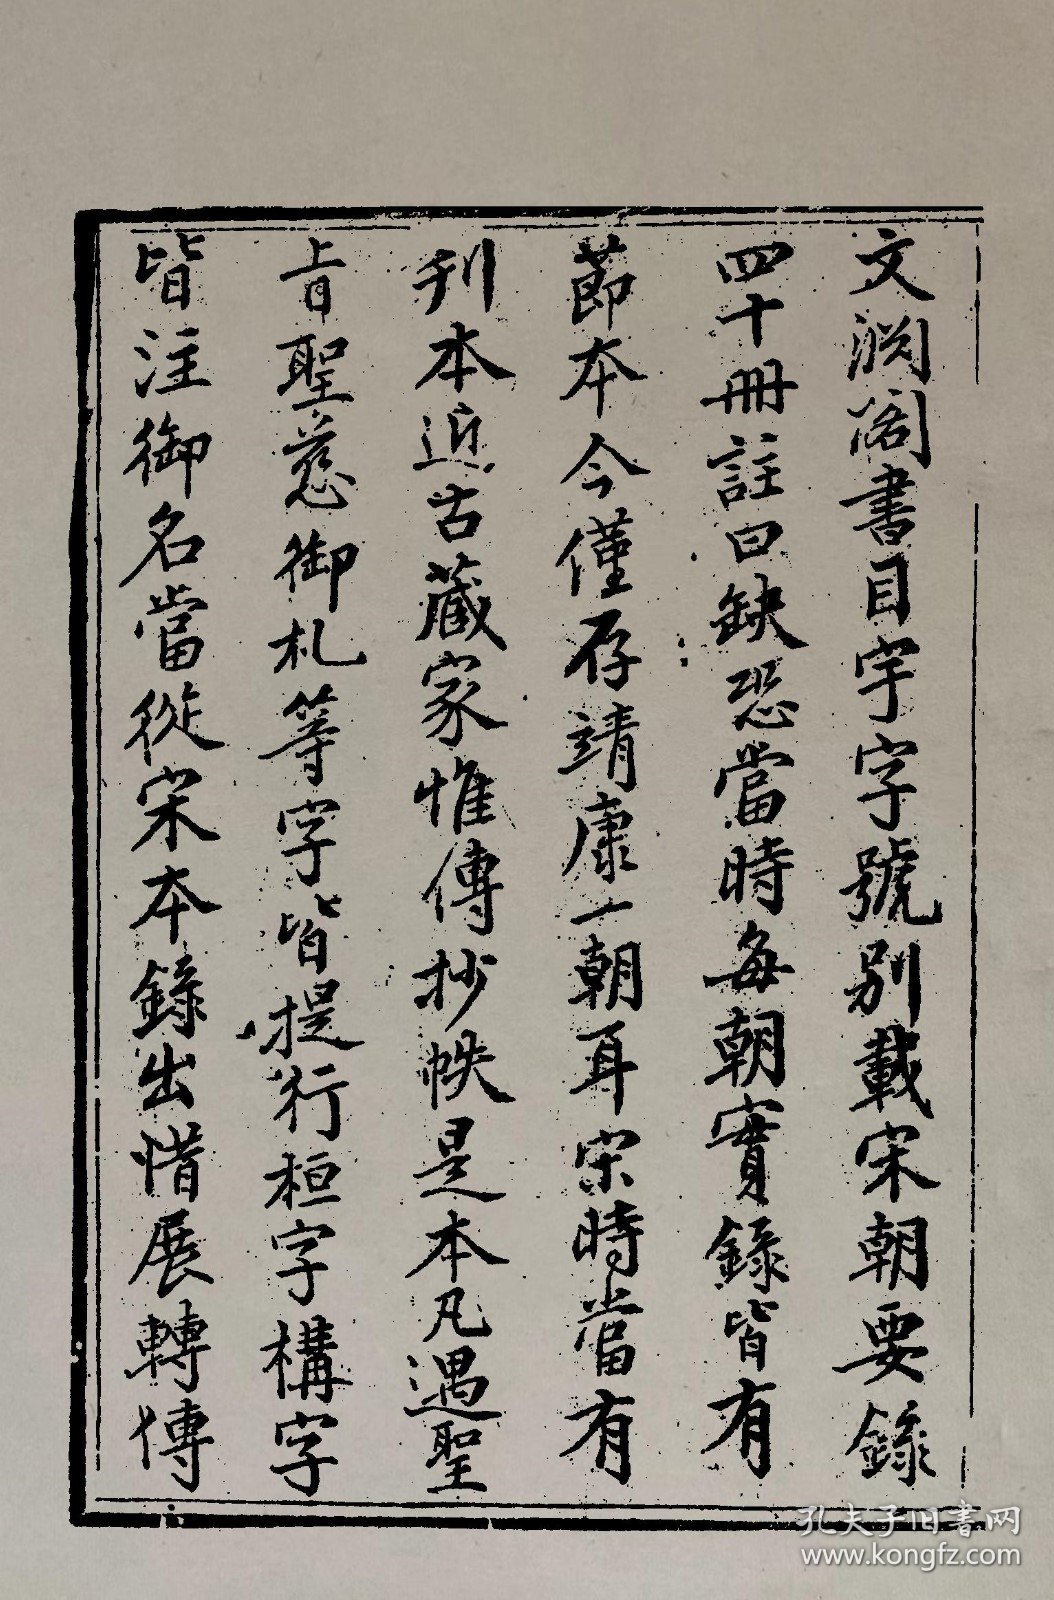 文渊阁書目宇字號别載宋朝要錄
四十冊註曰缺恐當時每朝實錄皆有
節本今僅存靖康一朝耳宋時當有
刋本近古藏家惟傳抄帙是本凡遇聖
旨聖慈御札等字皆提行桓字構字
皆注御名當從宋本錄出惜展轉傳
孔夫子旧書网
www.kongfz.com